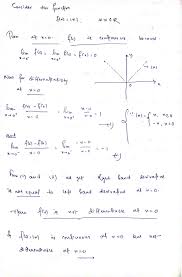 Consider the function
f(x) = |x|, x ∈ R
Then at x=0. f(x) is continuous because
lim f(x) = lim f(x) = f(0) = 0
x→0⁺ x→0⁻
Now for differentiability
at x=0
lim f(x) - f(0) = lim x-0 = 1
x→0⁺ x-0 x→0⁺ x-0
|x| = { x, x≥0
-x, x<0
And
lim f(x) - f(0) = lim -x-0 = -1
x→0⁻ x-0 x→0⁻ x-0
From (i) and (ii) we get Right hand derivative
is not equal to left hand derivative at x=0
Hence f(x) is not differentiable at x=0
So f(x) = |x| is continuous at x=0 but not
differentiable at x=0